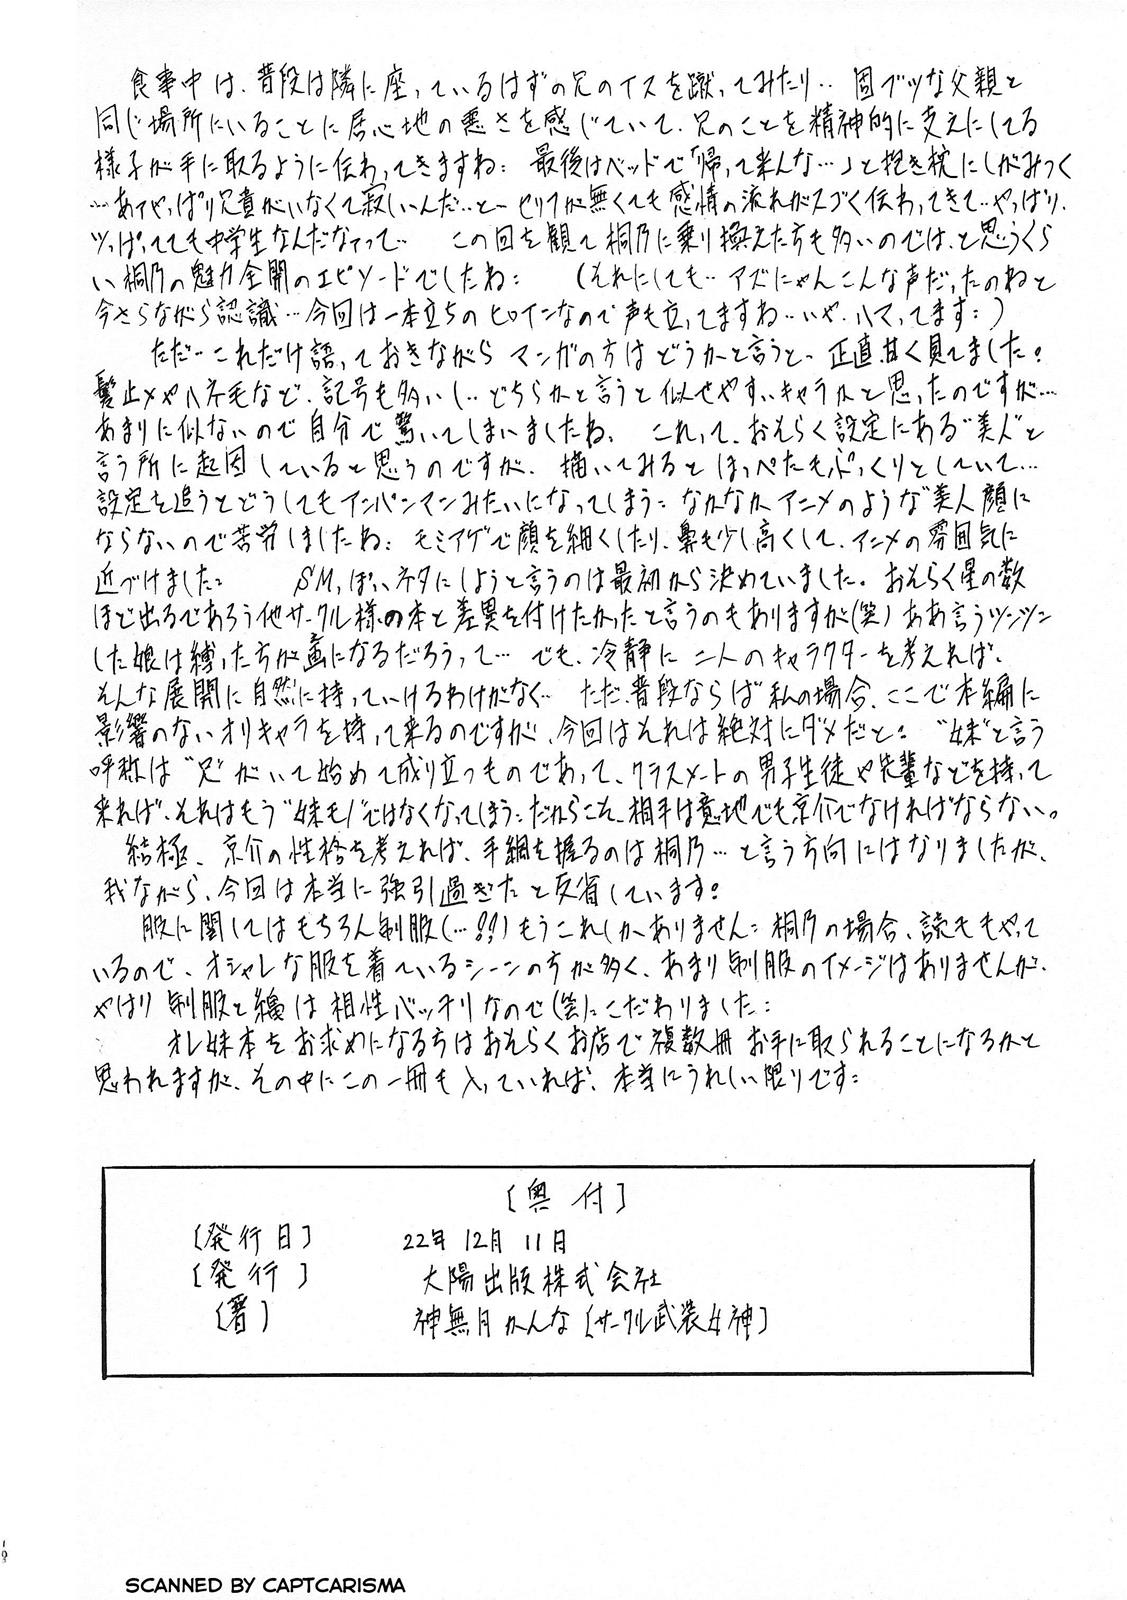 食事中は、普段は隣に座っているはずの兄のイスを蹴ってみたり‥ 固ブツな父親と
同じ場所にいることに居心地の悪さを感じていて、兄のことを精神的に支えにしてる
様子が手に取るように伝わってきますね: 最後はベッドで「帰って来んな…」と抱き枕にしがみつく
…あァやっぱり兄貴がいなくて寂しいんだ…と― セリフが無くても感情の流れがスゴく伝わってきて‥やっぱり、
ツッぱってても中学生なんだなァって‥ この回を観て桐乃に乗り換えた方も多いのでは、と思うくら
い桐乃の魅力全開のエピソードでしたね: (それにしても‥アズにゃんこんな声だったのねと
今さらながら認識…今回は一本立ちのヒロインなので声も立ってますね‥いや、ハマってます:)
ただ‥これだけ語っておきながら マンガの方はどうかと言うと― 正直、甘く見てました!
髪止メやハネ毛など、記号も多いし‥どちらかと言うと似せやすいキャラかと思ったのですが…
あまりに似ないので自分で驚いてしまいましたね。 これって、おそらく設定にある"美人"と
言う所に起因していると思うのですが、描いてみるとほっぺたもぷっくりとしていて…
設定を追うとどうしてもアンパンマンみたいになってしまう: なかなかアニメのような"美人顔に
ならないので苦労しましたね: モミアゲで顔を細くしたり、鼻も少し高くして、アニメの雰囲気に
近づけました: SMっぽいネタにしようと言うのは最初から決めていました。おそらく星の数
ほど出るであろう他サークル様の本と差異を付けたかったと言うのもありますが(笑)ああ言うツンツン
した娘は縛った方が画になるだろうって… でも、冷静に二人のキャラクターを考えれば、
そんな展開に自然に持っていけるわけがなく‥ ただ、普段ならば私の場合、ここで本編に
影響のないオリキャラを持って来るのですが、今回はそれは絶対にダメだと: "妹"と言う
呼称は"兄"がいて始めて成り立つものであって、クラスメートの男子生徒や先輩などを持って
来れば、それはもう"妹モノ"ではなくなってしまう: だからこそ、相手は意地でも京介でなければならない。
結極、京介の性格を考えれば、手綱を握るのは桐乃…と言う方向にはなりましたが、
我ながら、今回は本当に強引過ぎたと反省しています!
服に関してはもちろん制服(…!!)もうこれしかありません: 桐乃の場合、読モもやって
いるので、オシャレな服を着ているシーンの方が多く、あまり制服のイメージはありませんが、
やはり制服と縄は相性バッチリなので(笑)こだわりました:
オレ妹本をお求めになる方はおそらくお店で複数冊お手に取られることになるかと
思われますが、その中にこの一冊も入っていれば、本当にうれしい限りです:
[奥付]
[発行日] 22年12月11日
[発行] 大陽出版株式会社
[著] 神無月かんな[サークル武装女神]
103
SCANNED BY CAPTCARISMA